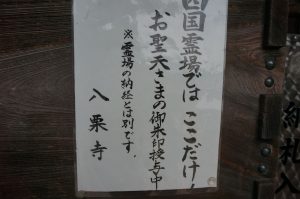 四国霊場では ここだけ!
お聖天さまの御朱印授与中
※霊場の納経とは別です。
八栗寺
納札入